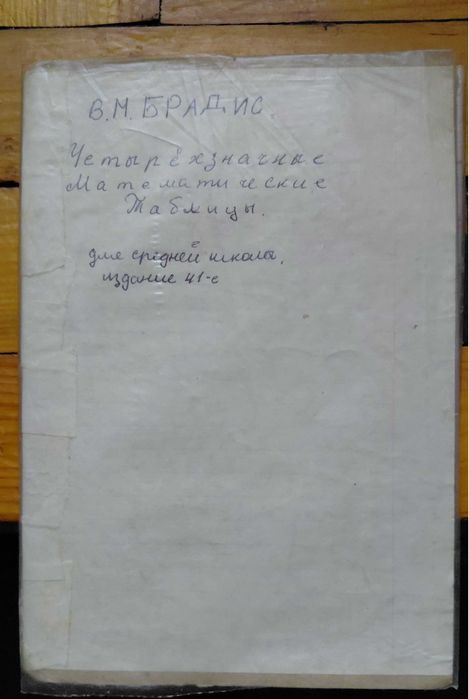 В.М. БРАДИС.
Четырёхзначные
Математические
Таблицы.
для средней школы.
издание 41-е